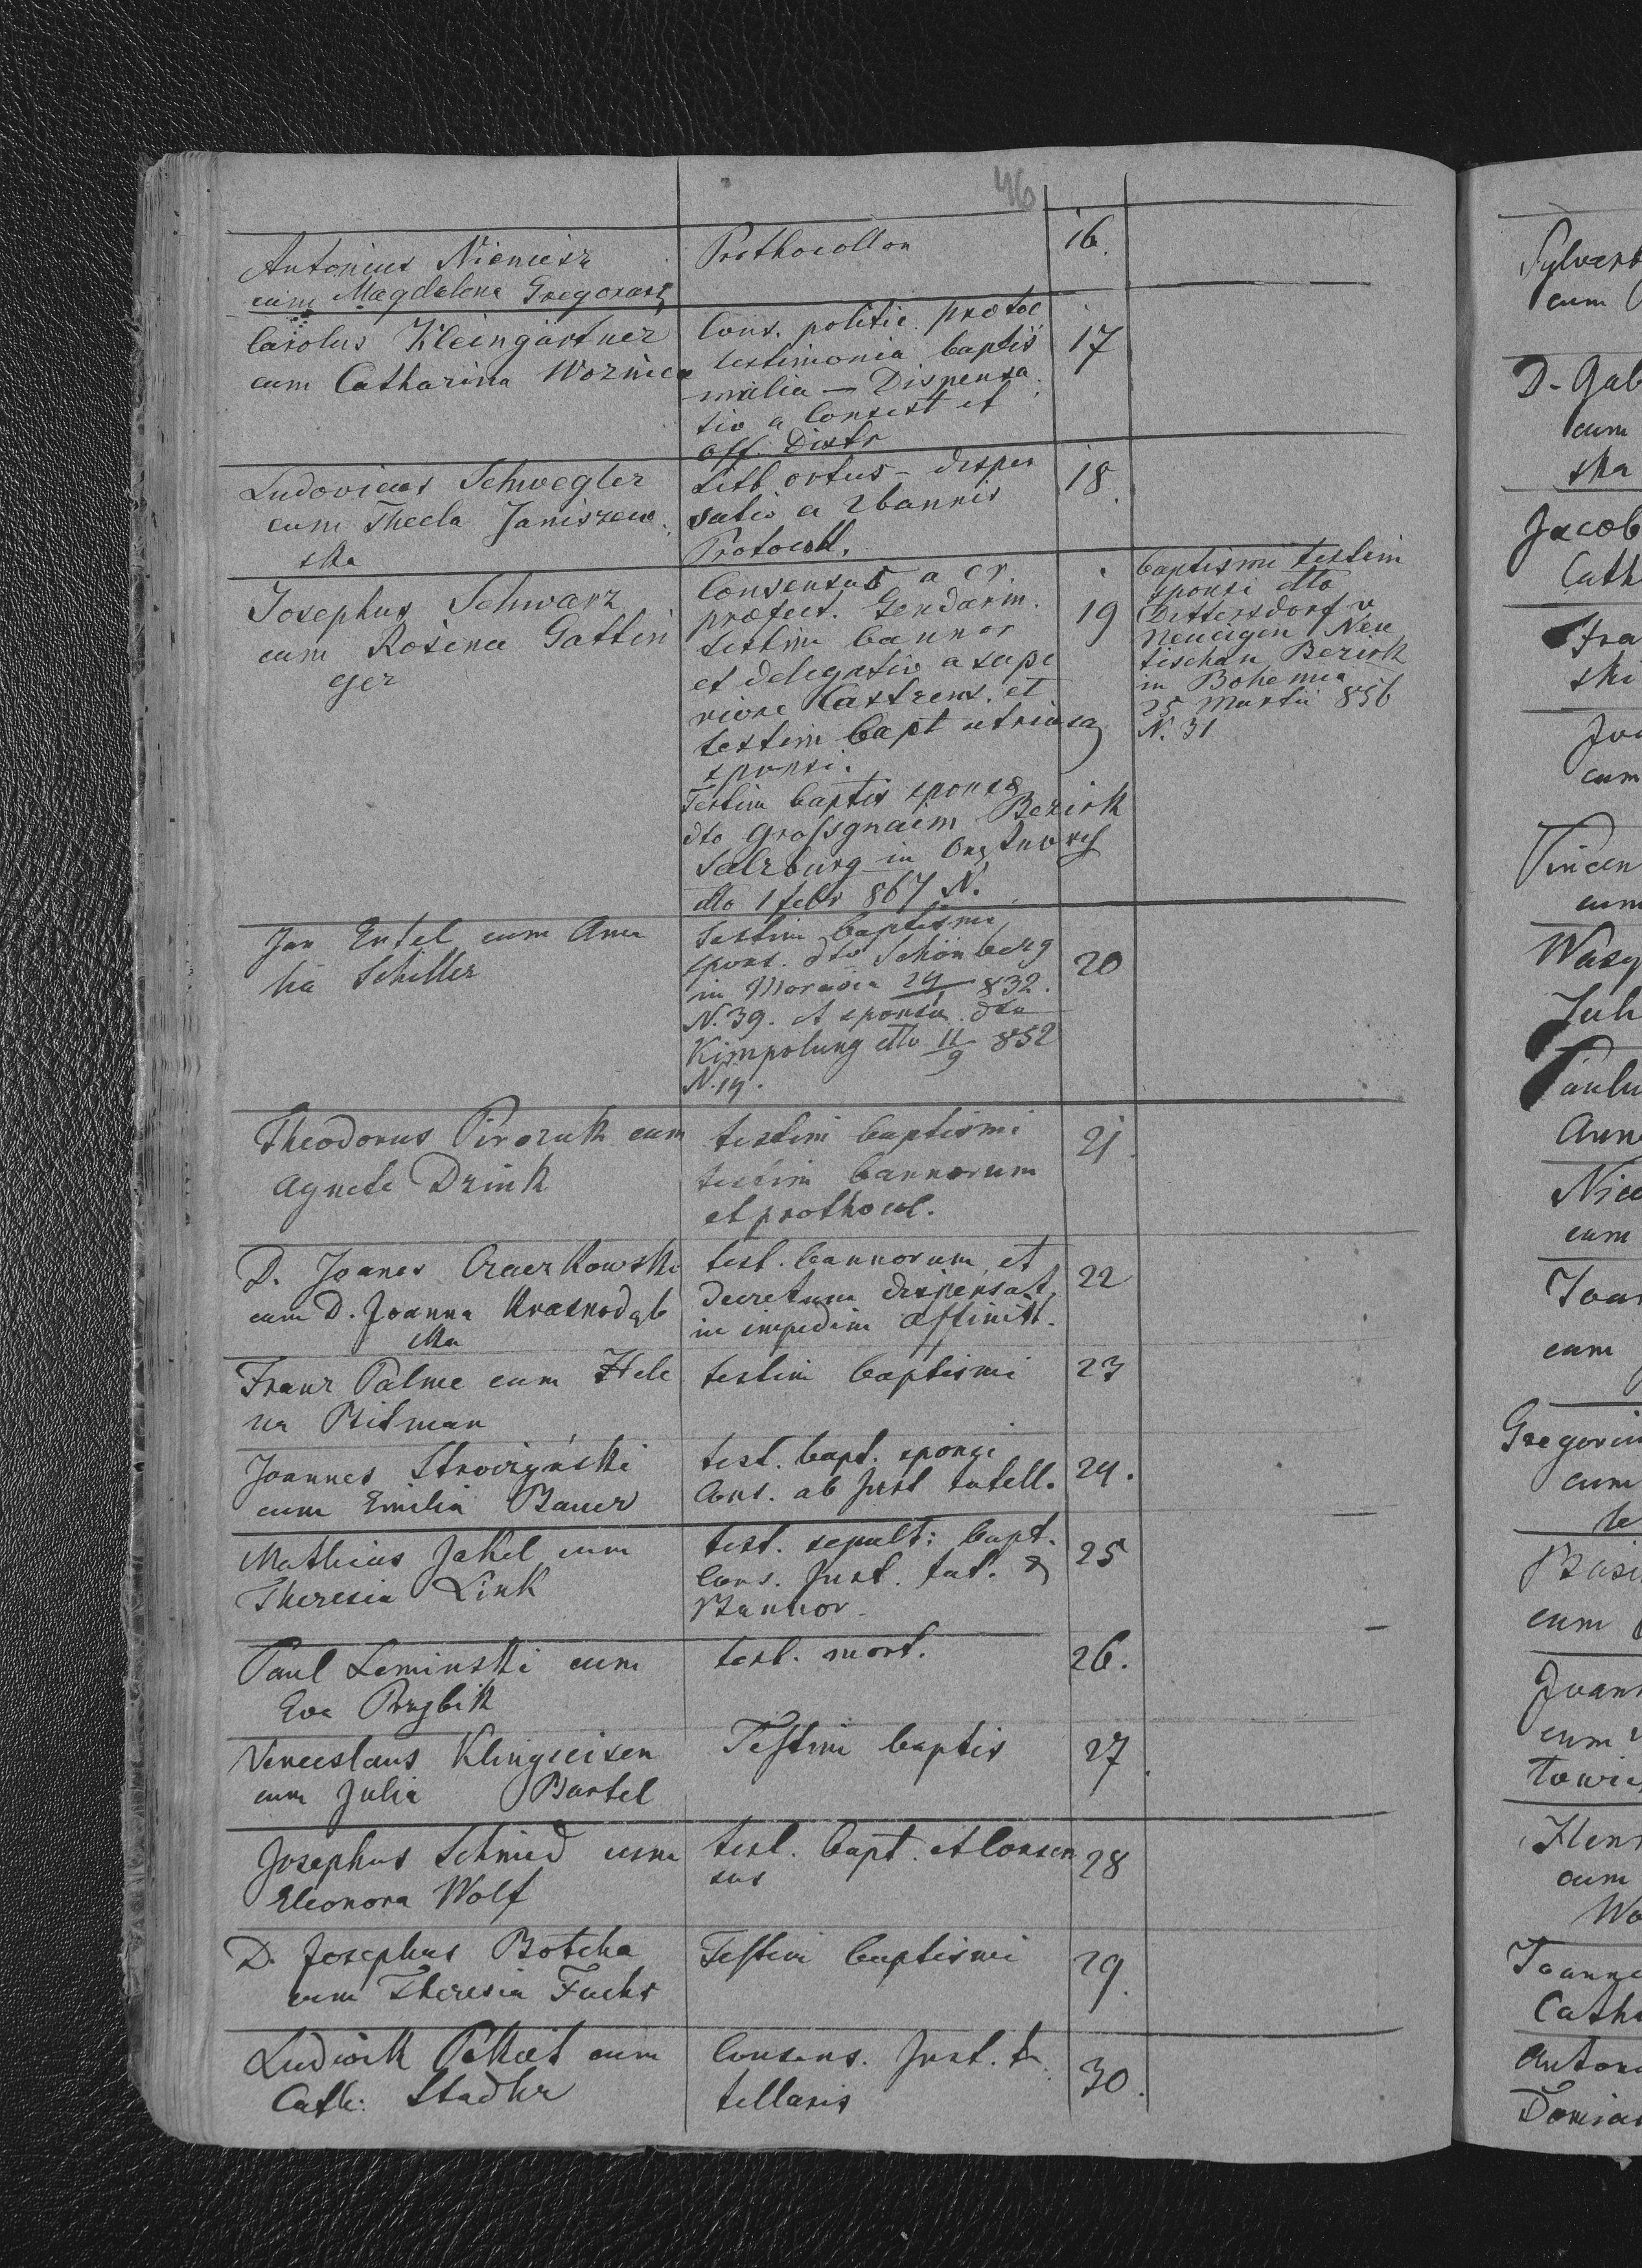 46
Antonius Niemicz
cum Magdalena Gregorasz
Prothocollon
16.
Carolus Kleingärtner
cum Catharina Woznica
Cons. politic. protoc
testimonia baptis
malia — Dispensa
tio a Consist et
off. Distr
17
Ludovicus Schwegler
cum Thecla Janiszew
ska
Test ortus - dispen
satio a 2 bannis
Protocoll.
18
Josephus Schwarz
cum Rosina Gattin
ger
Consensus a cr.
prefect. Gendarm.
testim bannor
et delegatio a supe
riore Castrens. et
testim bapt utriusq
sponsi.
Testim baptis sponsa
dto Grossgnaim Bezirk
Salzburg in
dto 1 febr 867 N.
19
baptismi testim
sponsi dto
Dittersdorf v
Neueigen Neu
tischan Bezirk
in Bohemia
25 Martii 856
N. 31
Jan Entel cum Ama
lia Schiller
Testim baptismi
spons. dto Schönberg
in Moravia 832.
N. 39. et sponsa dto
Kimpolung dto 11/9 852
N. 19.
20
Theodorus Pirozuk cum
Agnete Drink
testim baptismi
testim bannorum
et prothocol.
21.
D. Joanes Czaerkowski
cum D. Joanna Krasnodąb
ska
test. bannorum et
Decretum dispensat.
in impedim affinitt.
22
Franz Palme cum Hele
na Bitman
testim baptismi
23
Joannes Stroiczyński
cum Emilia Bauer
test. bapt. sponsi
Cons. ab Just tutell.
24.
Mathias Jakel cum
Theresia Link
test. sepult: bapt.
Cons. Just. tut. &
Bannor.
25
Paul Leminski cum
Eva Przybik
test. mort.
26.
Venceslaus Klingseisen
cum Julia Bartel
Testim baptis
27.
Josephus Schmid cum
Eleonora Wolf
test. bapt. et consen
sus
28
D. Josephus Botcha
cum Theresia Fuchs
Testim baptismi
29.
Ludwik Pekiet cum
Cath: Stadler
Consens. Just. tu
tellaris
30.
Sylvest
cum
D. Gab
cum
ska
Jacob
Cath
Fra
ski
Joa
cum
Vincen
cum
Wasy
Juli
Paulu
Anna
Nico
cum
Joan
cum
Gregoriu
cum
Basi
cum
Joan
cum
towic
Hen
cum
Wo
Joanne
Catha
Anton
Domia